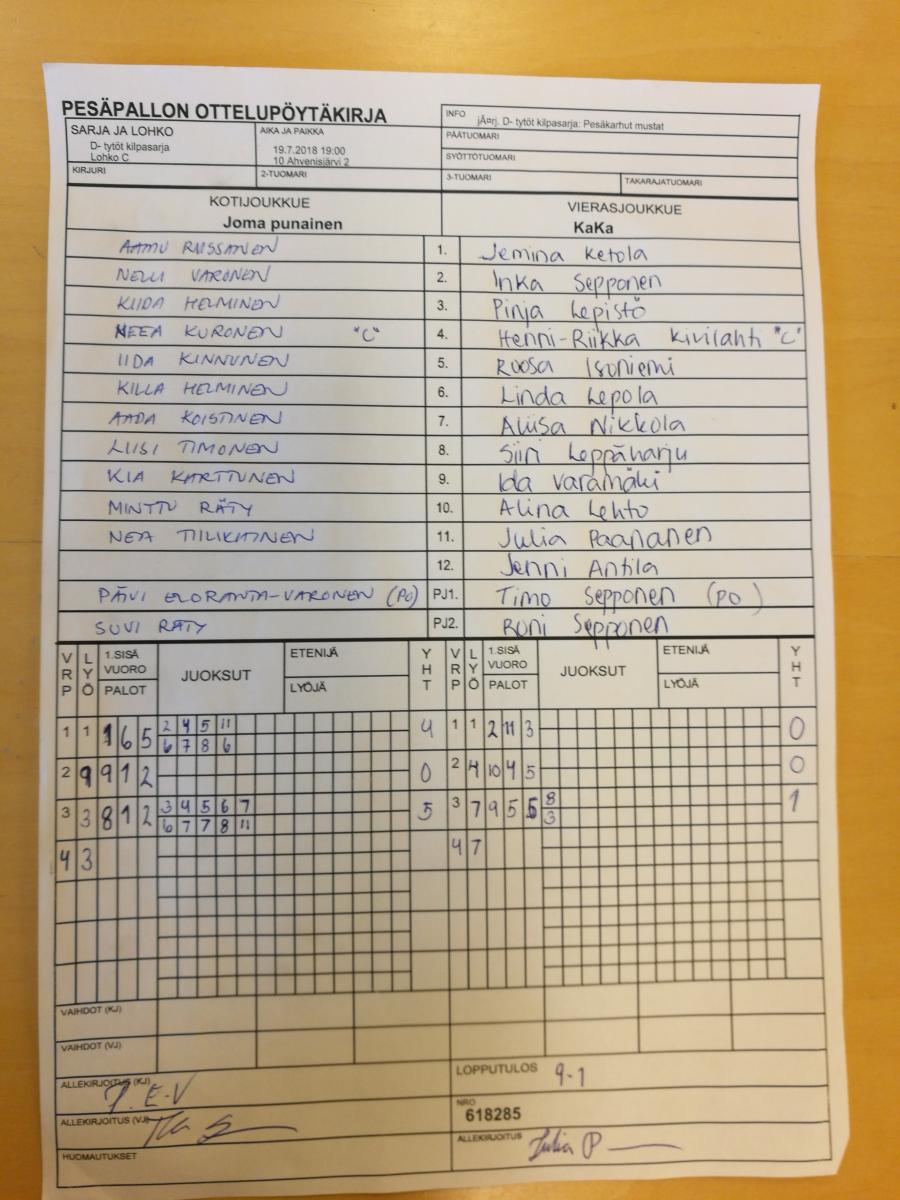 PESÄPALLON OTTELUPÖYTÄKIRJA
INFO jÃ¤rj. D- tytöt kilpasarja: Pesäkarhut mustat
SARJA JA LOHKO
D- tytöt kilpasarja
Lohko C
AIKA JA PAIKKA
19.7.2018 19:00
10 Ahvenisjärvi 2
PÄÄTUOMARI
SYÖTTÖTUOMARI
KIRJURI 2-TUOMARI 3-TUOMARI TAKARAJATUOMARI
KOTIJOUKKUE VIERASJOUKKUE
Joma punainen KaKa
AAMU RUSSANEN 1. Jemina Ketola
NELLI VARONEN 2. Inka Sepponen
KIIDA HELMINEN 3. Pinja Lepistö
NEEA KURONEN "C" 4. Henni-Riikka Kivilahti "C"
IIDA KINNUNEN 5. Roosa Isoniemi
KILLA HELMINEN 6. Linda Lepola
AADA KOISTINEN 7. Aliisa Nikkola
LIISI TIMONEN 8. Siiri Leppäharju
KIA KARTTUNEN 9. Ida Varamäki
MINTTU RÄTY 10. Alina Lehto
NEA TIILIKAINEN 11. Julia Paananen
12. Jenni Antila
PÄIVI ELORANTA-VARONEN (PO) PJ1. Timo Sepponen (PO)
SUVI RÄTY PJ2. Roni Sepponen
VRP LYÖ 1.SISÄ VUORO PALOT JUOKSUT ETENIJÄ LYÖJÄ YHT VRP LYÖ 1.SISÄ VUORO PALOT JUOKSUT ETENIJÄ LYÖJÄ YHT
1 1 1 6 5 2 4 5 11 4 1 1 2 11 3 0
6 7 8 6
2 9 9 1 2 0 2 4 10 4 5 0
3 3 8 1 2 3 4 5 6 7 5 3 7 9 5 6 8 1
6 7 7 8 11 3
4 3 4 7
VAIHDOT (KJ)
VAIHDOT (VJ)
ALLEKIRJOITUS (KJ) P. E-V LOPPUTULOS 9-1
ALLEKIRJOITUS (VJ) NRO 618285
HUOMAUTUKSET ALLEKIRJOITUS Julia P